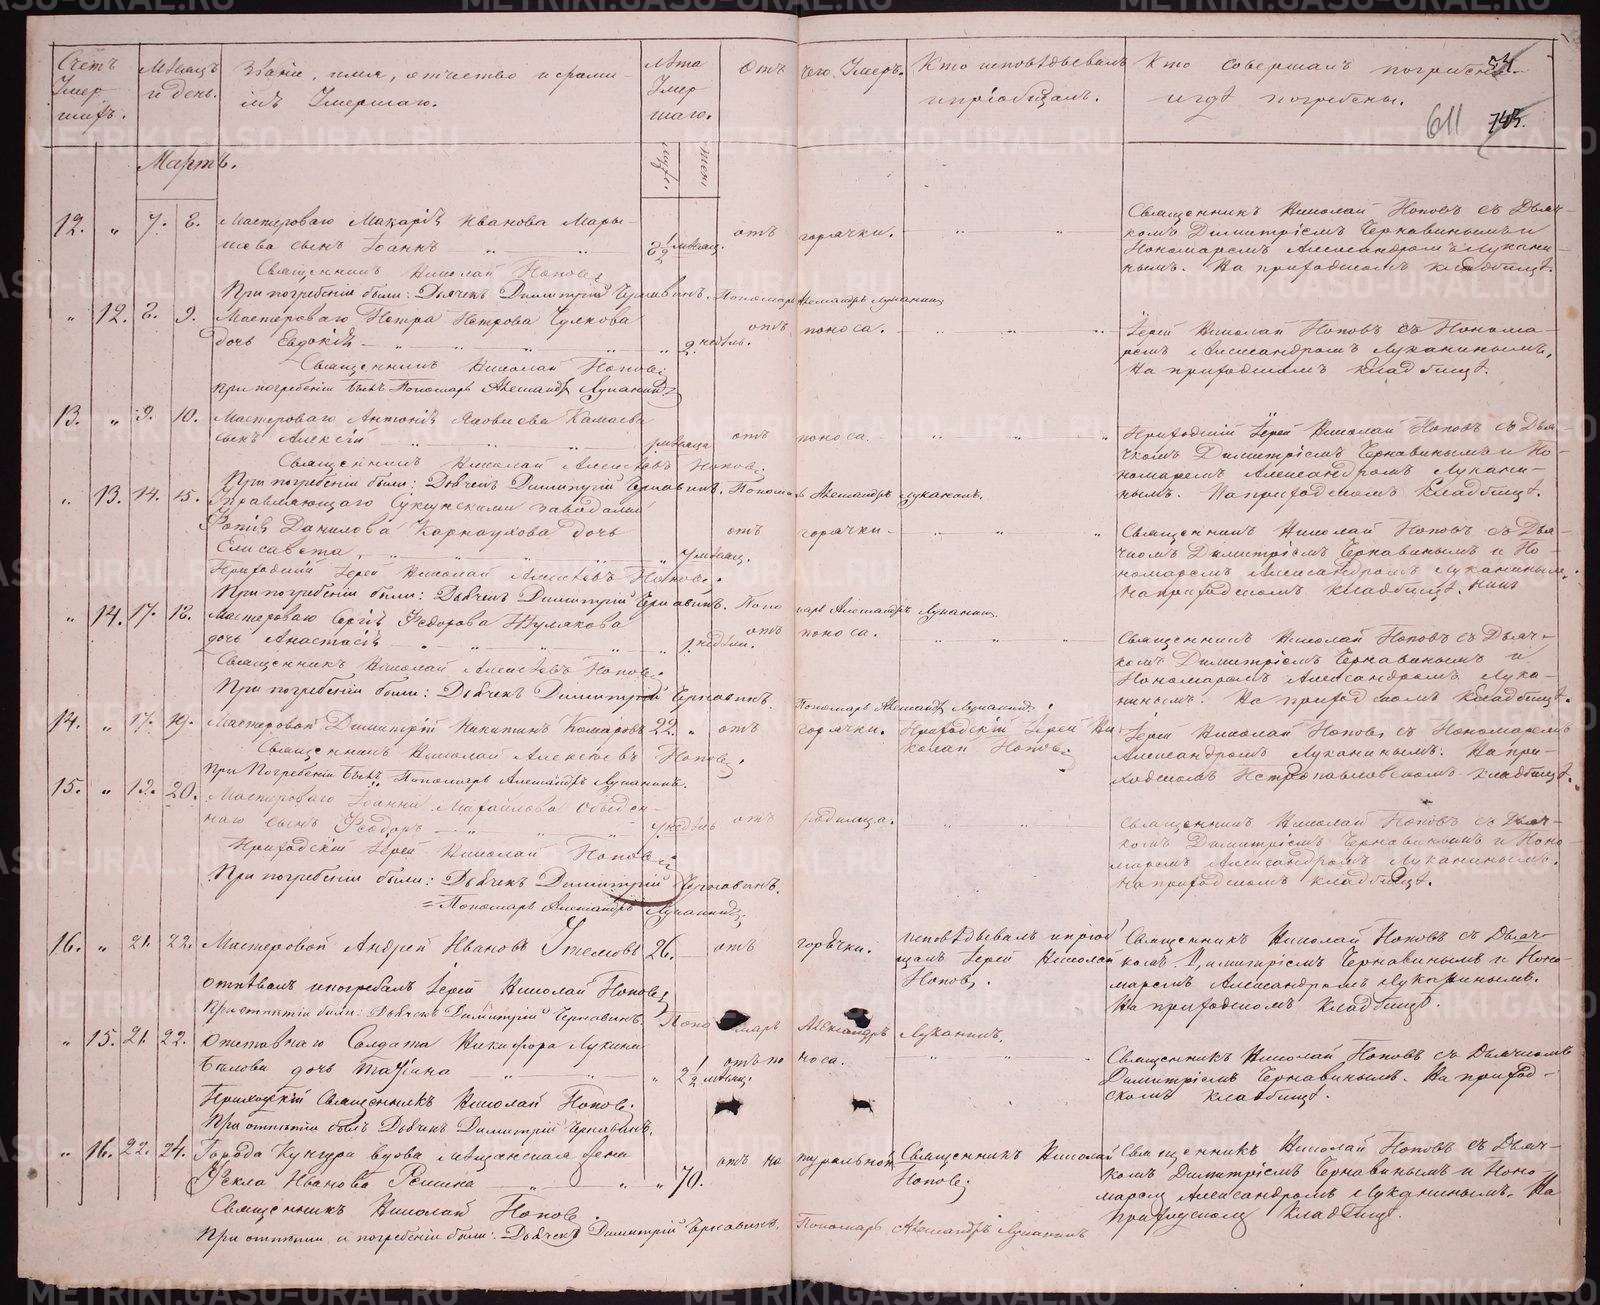 Счетъ Умершихъ.
Мѣсяцъ и день.
Званіе, имя, отчество и фамилія Умершаго.
Лѣта Умершаго.
Отъ чего Умеръ.
Кто исповѣдывалъ и пріобщалъ.
Кто совершалъ погребеніе и гдѣ погребены.
611
Мартъ.
муже.
жен
12. " 7. 8. Мастероваго Макарія Иванова
сынъ Іоаннъ " " мѣсяц. отъ горячки.
Священникъ Николай Поповъ съ Дьяч-
комъ Димитріемъ Чернавинымъ и
Пономаремъ Александромъ Лукани-
нымъ. На приходскомъ кладбищѣ.
Священникъ Николай Поповъ
При погребеніи были: Дьячекъ Димитрій Чернавинъ. Пономарь Александръ Луканинъ
" 12. 8. 9. Мастероваго Петра Петрова Чулкова
дочь Евдокія " " 2 недѣль. отъ поноса.
Іерей Николай Поповъ съ Понома-
ремъ Александромъ Луканинымъ.
На приходскомъ кладбищѣ.
Священникъ Николай Поповъ
При погребеніи былъ Пономарь Александръ Луканинъ
13. " 9. 10. Мастероваго Антонія Яковлева
сынъ Алексій " " 1 мѣсяца отъ поноса.
Приходскій Іерей Николай Поповъ съ Дья-
чкомъ Димитріемъ Чернавинымъ и По-
номаремъ Александромъ Лукани-
нымъ. На приходскомъ кладбищѣ.
Священникъ Николай Алексѣевъ Поповъ.
При погребеніи были: Дьячекъ Димитрій Чернавинъ. Пономарь Александръ Луканинъ.
" 13. 14. 15. Управляющаго Суксунскими заводами
Фотія Данилова Карнаухова дочь
Елисавета, " " 7 мѣсяц. отъ горячки
Священникъ Николай Поповъ съ Дья-
чкомъ Димитріемъ Чернавинымъ и По-
номаремъ Александромъ Луканинымъ.
На приходскомъ кладбищѣ.
Приходскій Іерей Николай Алексѣевъ Поповъ.
При погребеніи были: Дьячекъ Димитрій Чернавинъ. Пономарь Александръ Луканинъ
" 14. 17. 18. Мастероваго Сергія Федорова
дочь Анастасія " " 1 недѣли. отъ поноса.
Священникъ Николай Поповъ съ Дьяч-
комъ Димитріемъ Чернавинымъ и
Пономаремъ Александромъ Лука-
нинымъ. На приходскомъ кладбищѣ.
Священникъ Николай Алексѣевъ Поповъ.
При погребеніи были: Дьячекъ Димитрій Чернавинъ. Пономарь Александръ Луканинъ.
14. " 17. 19. Мастеровой Димитрій Никитинъ Комаровъ 22. " отъ горячки. Приходскій Іерей Николай Поповъ.
Іерей Николай Поповъ съ Пономаремъ
Александромъ Луканинымъ. На при-
ходскомъ Петропавловскомъ кладбищѣ.
Священникъ Николай Алексѣевъ Поповъ.
При Погребеніи былъ Пономарь Александръ Луканинъ.
15. " 18. 20. Мастероваго Іоанна Михайлова
сынъ Ѳеодоръ " " недѣль отъ родимца.
Священникъ Николай Поповъ съ Дьяч-
комъ Димитріемъ Чернавинымъ и Поно-
маремъ Александромъ Луканинымъ.
На приходскомъ кладбищѣ.
Приходскій Іерей Николай Поповъ
При погребеніи были: Дьячекъ Димитрій Чернавинъ.
Пономарь Александръ Луканинъ.
16. " 21. 22. Мастеровой Андрей Ивановъ Утемовъ 26. отъ горячки.
исповѣдывалъ и пріоб-
щалъ Іерей Николай
Поповъ.
Священникъ Николай Поповъ съ Дьяч-
комъ Димитріемъ Чернавинымъ и Поно-
маремъ Александромъ Луканинымъ.
На приходскомъ кладбищѣ.
отпѣвалъ и погребалъ Іерей Николай Поповъ
При отпѣтіи были: Дьячекъ Димитрій Чернавинъ, Пономарь Александръ Луканинъ.
" 15. 21. 22. отставнаго Солдата Никифора Лукина
Бѣлова дочь Татіана " " 2½ мѣсяц. отъ поноса.
Священникъ Николай Поповъ съ Дьячкомъ
Димитріемъ Чернавинымъ. На приход-
скомъ кладбищѣ.
Приходскій Священникъ Николай Поповъ.
При отпѣтіи былъ Дьячекъ Димитрій Чернавинъ.
" 16. 22. 24. Города Кунгура вдова мѣщанская жена
Ѳекла Иванова " " 70. отъ натуральной
Священникъ Николай
Поповъ.
Священникъ Николай Поповъ съ Дьяч-
комъ Димитріемъ Чернавинымъ и Поно-
маремъ Александромъ Луканинымъ. На
приходскомъ кладбищѣ.
Священникъ Николай Поповъ.
При отпѣтіи и погребеніи были: Дьячекъ Димитрій Чернавинъ. Пономарь Александръ Луканинъ
METRIKI.GASO-URAL.RU